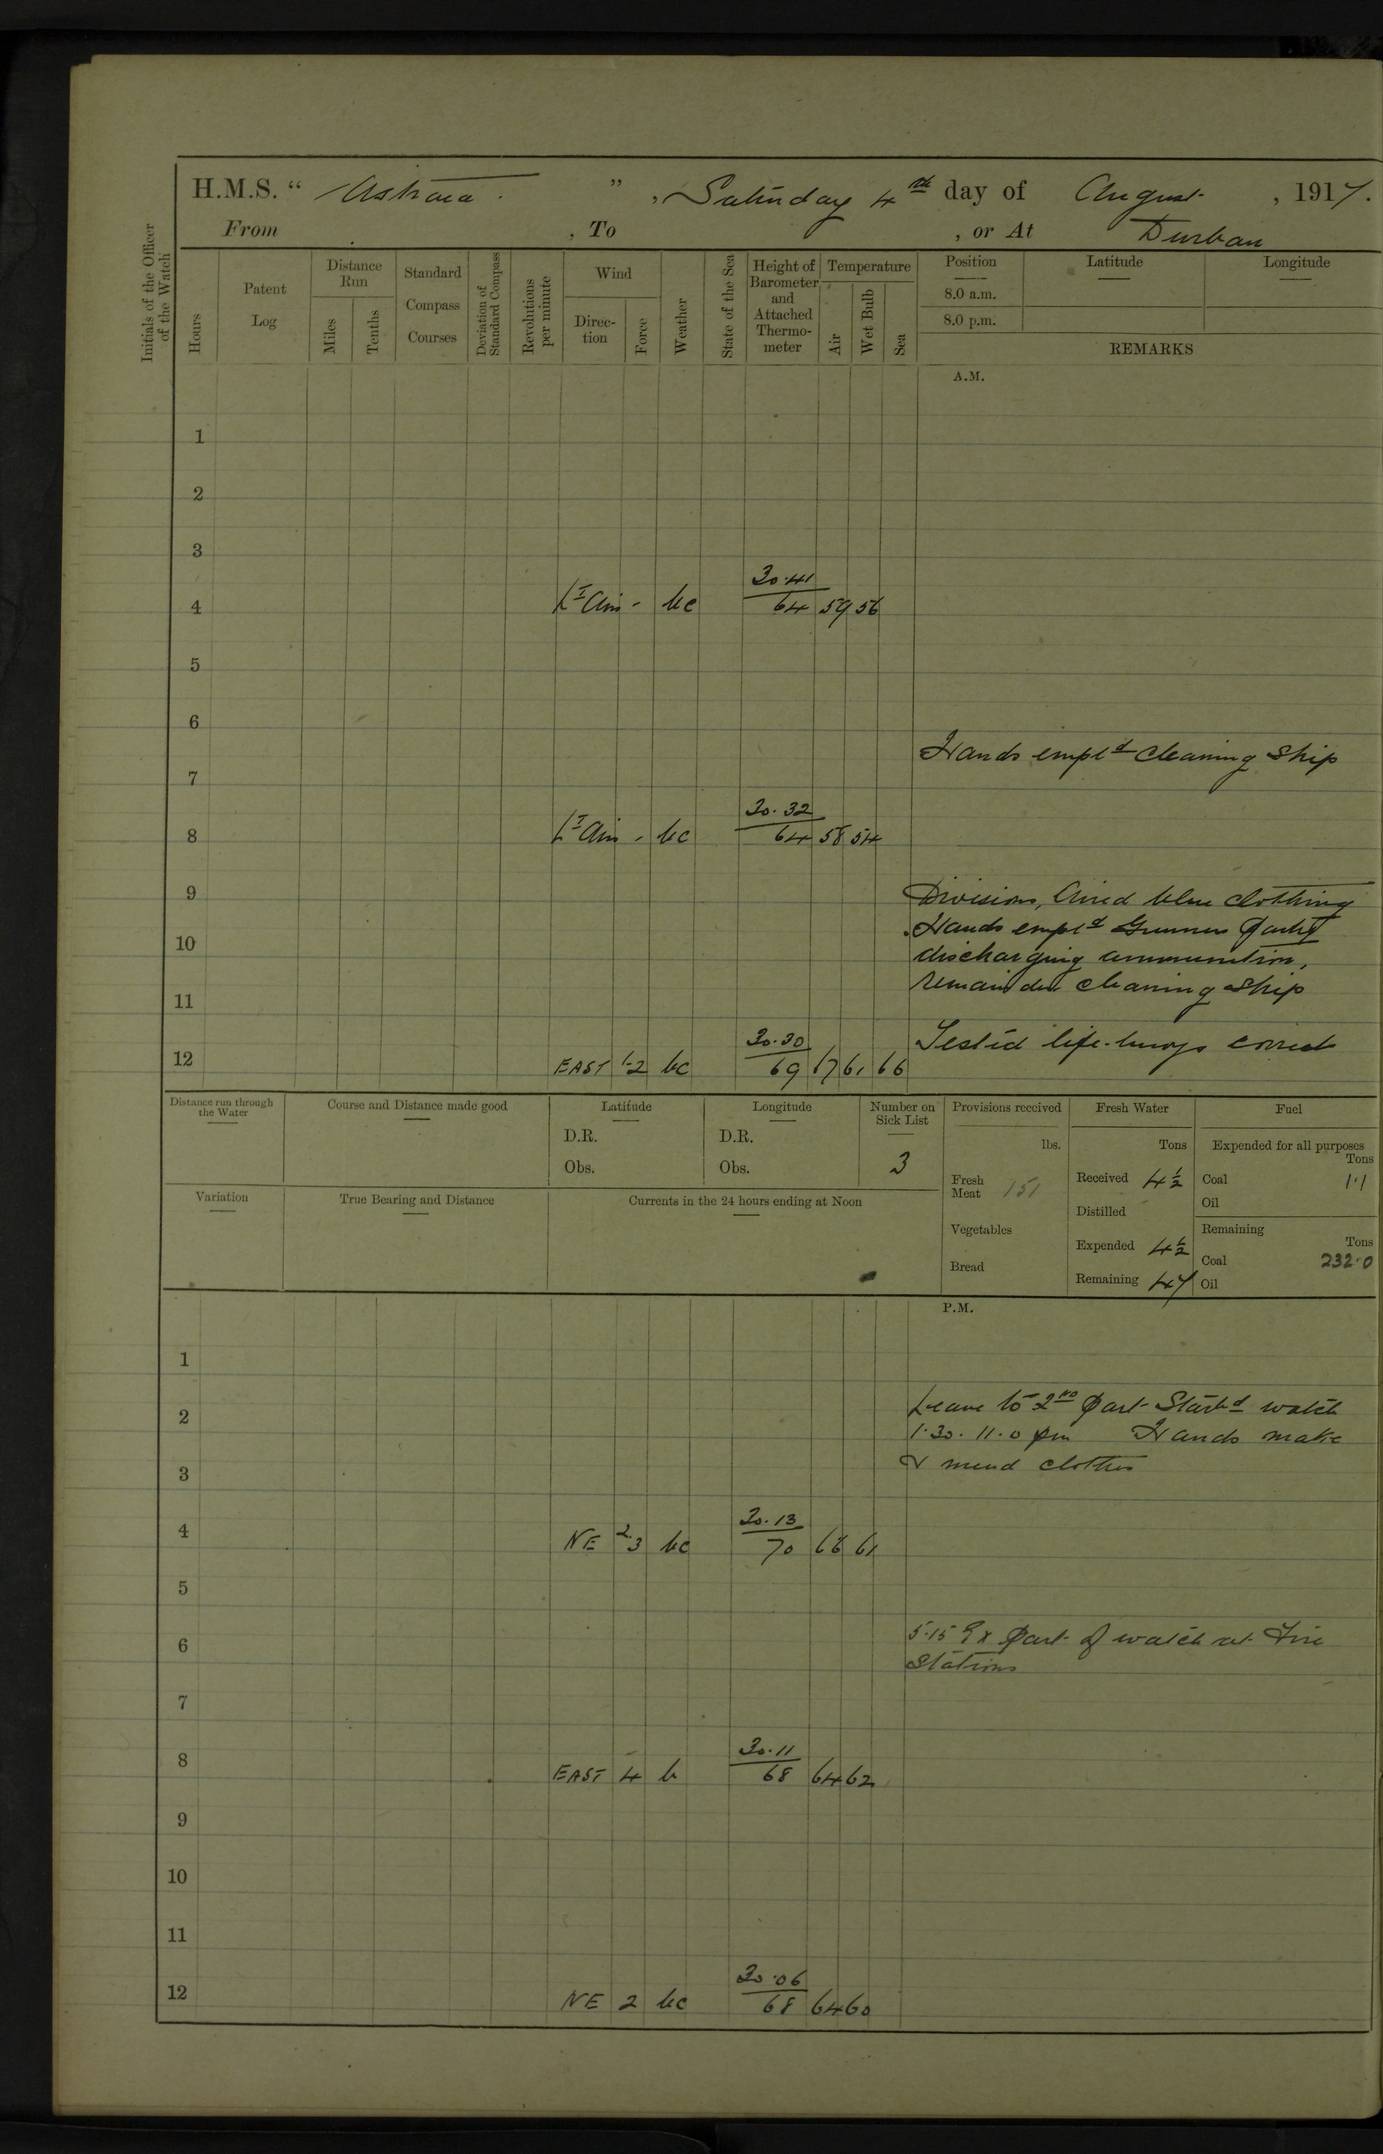 H.M.S. “ Astraea ”, Saturday 4th day of August, 1917.
From , To , or At Durban
Initials of the Officer of the Watch
Hours
Patent Log
Distance Run
Miles
Tenths
Standard Compass Courses
Deviation of Standard Compass
Revolutions per minute
Wind
Direc-tion
Force
Weather
State of the Sea
Height of Barometer and Attached Thermo-meter
Temperature
Air
Wet Bulb
Sea
Position
8.0 a.m.
8.0 p.m.
Latitude
Longitude
REMARKS
A.M.
1
2
3
4 Lt Airs - bc 30.41 64 59 56
5
6
Hands empld cleaning ship
7
8 Lt Airs - bc 30.32 64 58 54
9 Divisions, Aired blue clothing
Hands empld Gunners Party
10 discharging ammunition,
remainder cleaning ship
11
Tested life-buoys correct
12 EAST 1-2 bc 30.30 69 67 61 66
Distance run through the Water
Course and Distance made good
Latitude
D.R.
Obs.
Longitude
D.R.
Obs.
Number on Sick List
3
Provisions received
lbs.
Fresh Meat 151
Vegetables
Bread
Fresh Water
Tons
Received 4½
Distilled
Expended 4½
Remaining 47
Fuel
Expended for all purposes
Tons
Coal 1.1
Oil
Remaining
Tons
Coal 232.0
Oil
Variation
True Bearing and Distance
Currents in the 24 hours ending at Noon
P.M.
1
Leave to 2nd Part Starbd watch
2
1.30. 11.0 pm Hands make
3 & mend clothes
4 NE 2.3 bc 30.13 70 68 61
5
6 5.15 Ex Part of watch at Fire
Stations
7
8 EAST 4 b 30.11 68 64 62
9
10
11
12 NE 2 bc 30.06 68 64 60